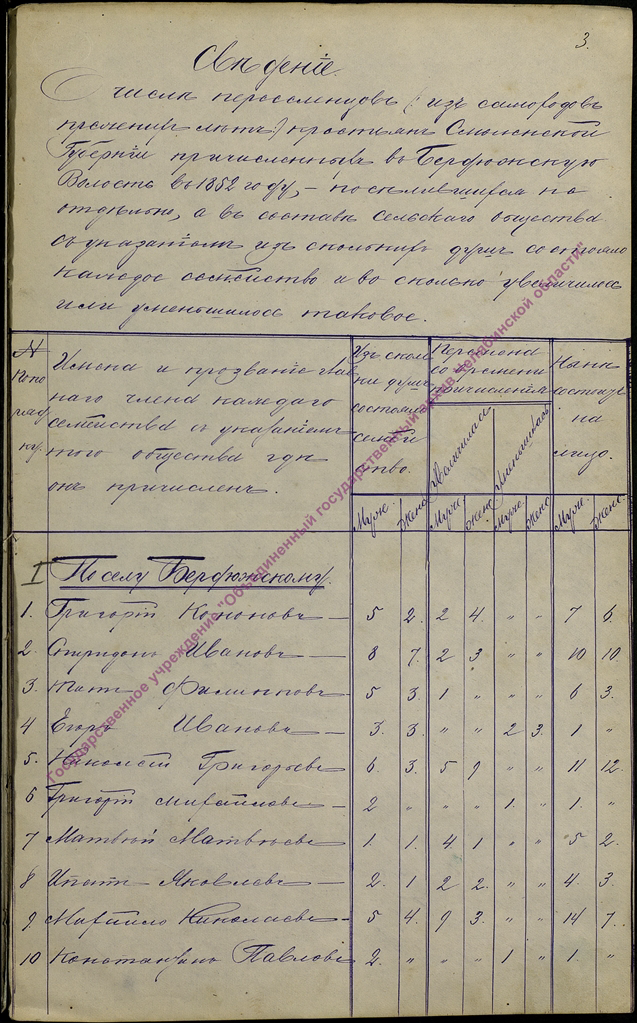 3.
Свѣденіе
О числѣ переселенцовъ (изъ самородовъ
прежнихъ лѣтъ) крестьянъ Смоленской
Губерніи причисленныхъ въ Берфюжскую
Волость въ 1852 году, – поселившихся не
отдѣльно, а въ составѣ сельскаго общества
съ указаніемъ изъ сколькихъ душъ состояло
каждое семейство и во сколько увеличилось
или уменьшилось таковое.
№ по порядку.
Имена и прозваніе главнаго члена каждаго семейства съ указаніемъ того общества гдѣ онъ причисленъ.
Изъ сколькихъ душъ состояло семейство.
со времени причисленія
Увеличилось
Уменьшилось
Нынѣ состоитъ на лицо.
Муж. Женс. Муж. Женс. Муж. Женс. Муж. Женс.
I По селу Берфюжскому.
1. Григорій Кононовъ — 5 2. 2 4. " " 7 6.
2. Спиридонъ Ивановъ — 8 7. 2 3 " " 10 10.
3. Филипповъ — 5 3. 1 " " " 6 3.
4 Егоръ Ивановъ — 3. 3. " " 2 3. 1 "
5. Николай Григорьевъ 6. 3. 5 9 " " 11 12.
6 Григорій Михайловъ — 2 " " " 1. " 1. "
7 Матвѣй Матвѣевъ 1. 1. 4. 1 " " 5 2.
8 Ипатъ Яковлевъ — 2. 1 2 2. " " 4. 3.
9 Михайло Николаевъ — 5 4. 9 3. " " 14 7.
10 Константинъ Павловъ 2. " " " 1 " 1 "
Государственное учреждение "Объединенный государственный архив Челябинской области"